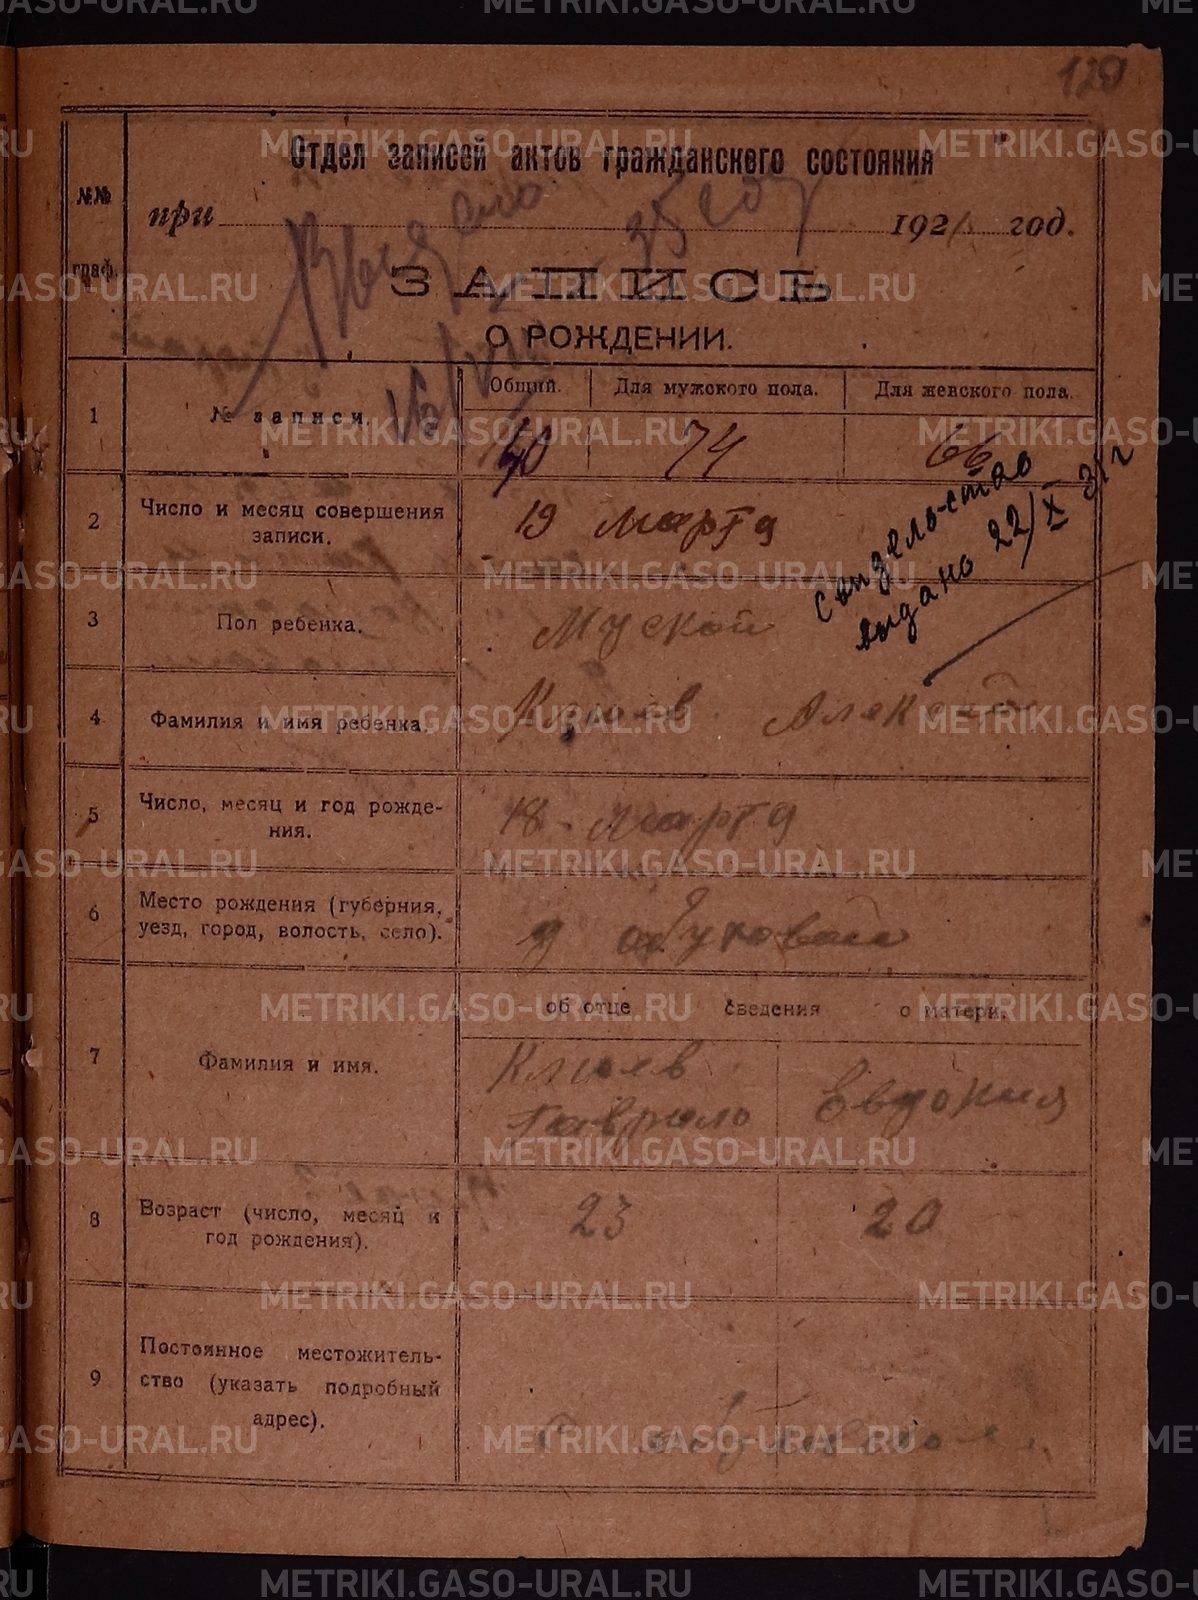 129
Отдел записей актов гражданского состояния
№№ граф.
при 1921 год.
ЗАПИСЬ
О РОЖДЕНИИ.
1 № записи.
Общий. Для мужского пола. Для женского пола.
140 74 66
2 Число и месяц совершения записи.
19 Марта
свидель-ство
выдано 22/X 31 г
3 Пол ребенка.
Муской
4 Фамилия и имя ребенка.
Клюев Алексей
5 Число, месяц и год рождения.
18 марта
6 Место рождения (губерния, уезд, город, волость, село).
д обуховай
об отце сведения о матери.
7 Фамилия и имя.
Клюев Гаврило
Евдокия
8 Возраст (число, месяц и год рождения).
23 20
9 Постоянное местожительство (указать подробный адрес).
METRIKI.GASO-URAL.RU